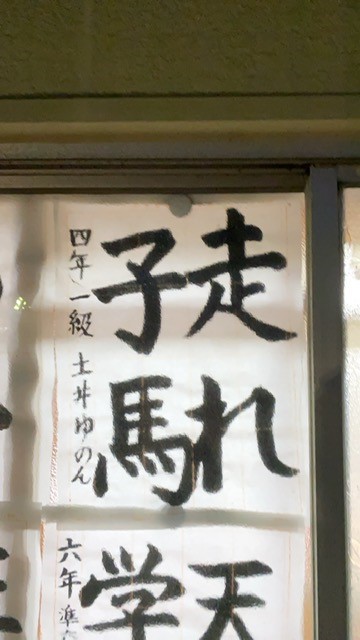 走れ
子馬
四年一級 土井ゆのん
天
学
六年準